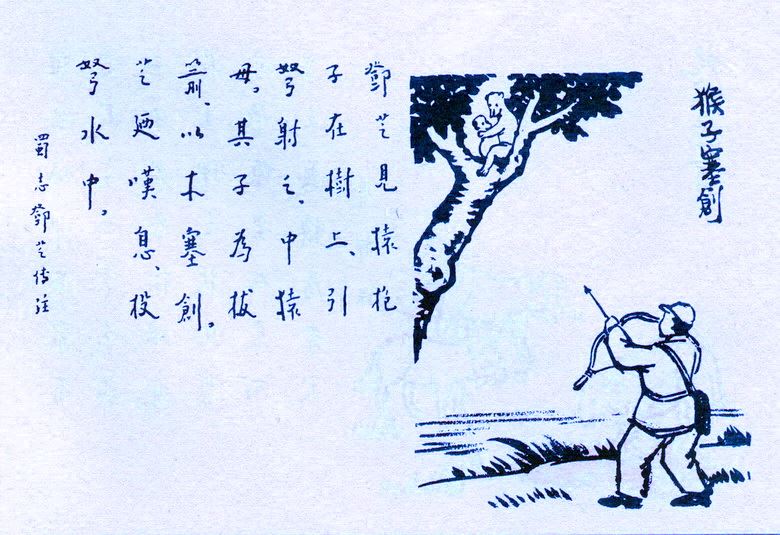 猴子塞創
鄧芝見猿抱
子在樹上、引
弩射之、中猿
母。其子為拔
箭、以木塞創。
芝廼嘆息、投
弩水中。
蜀志鄧芝傳注